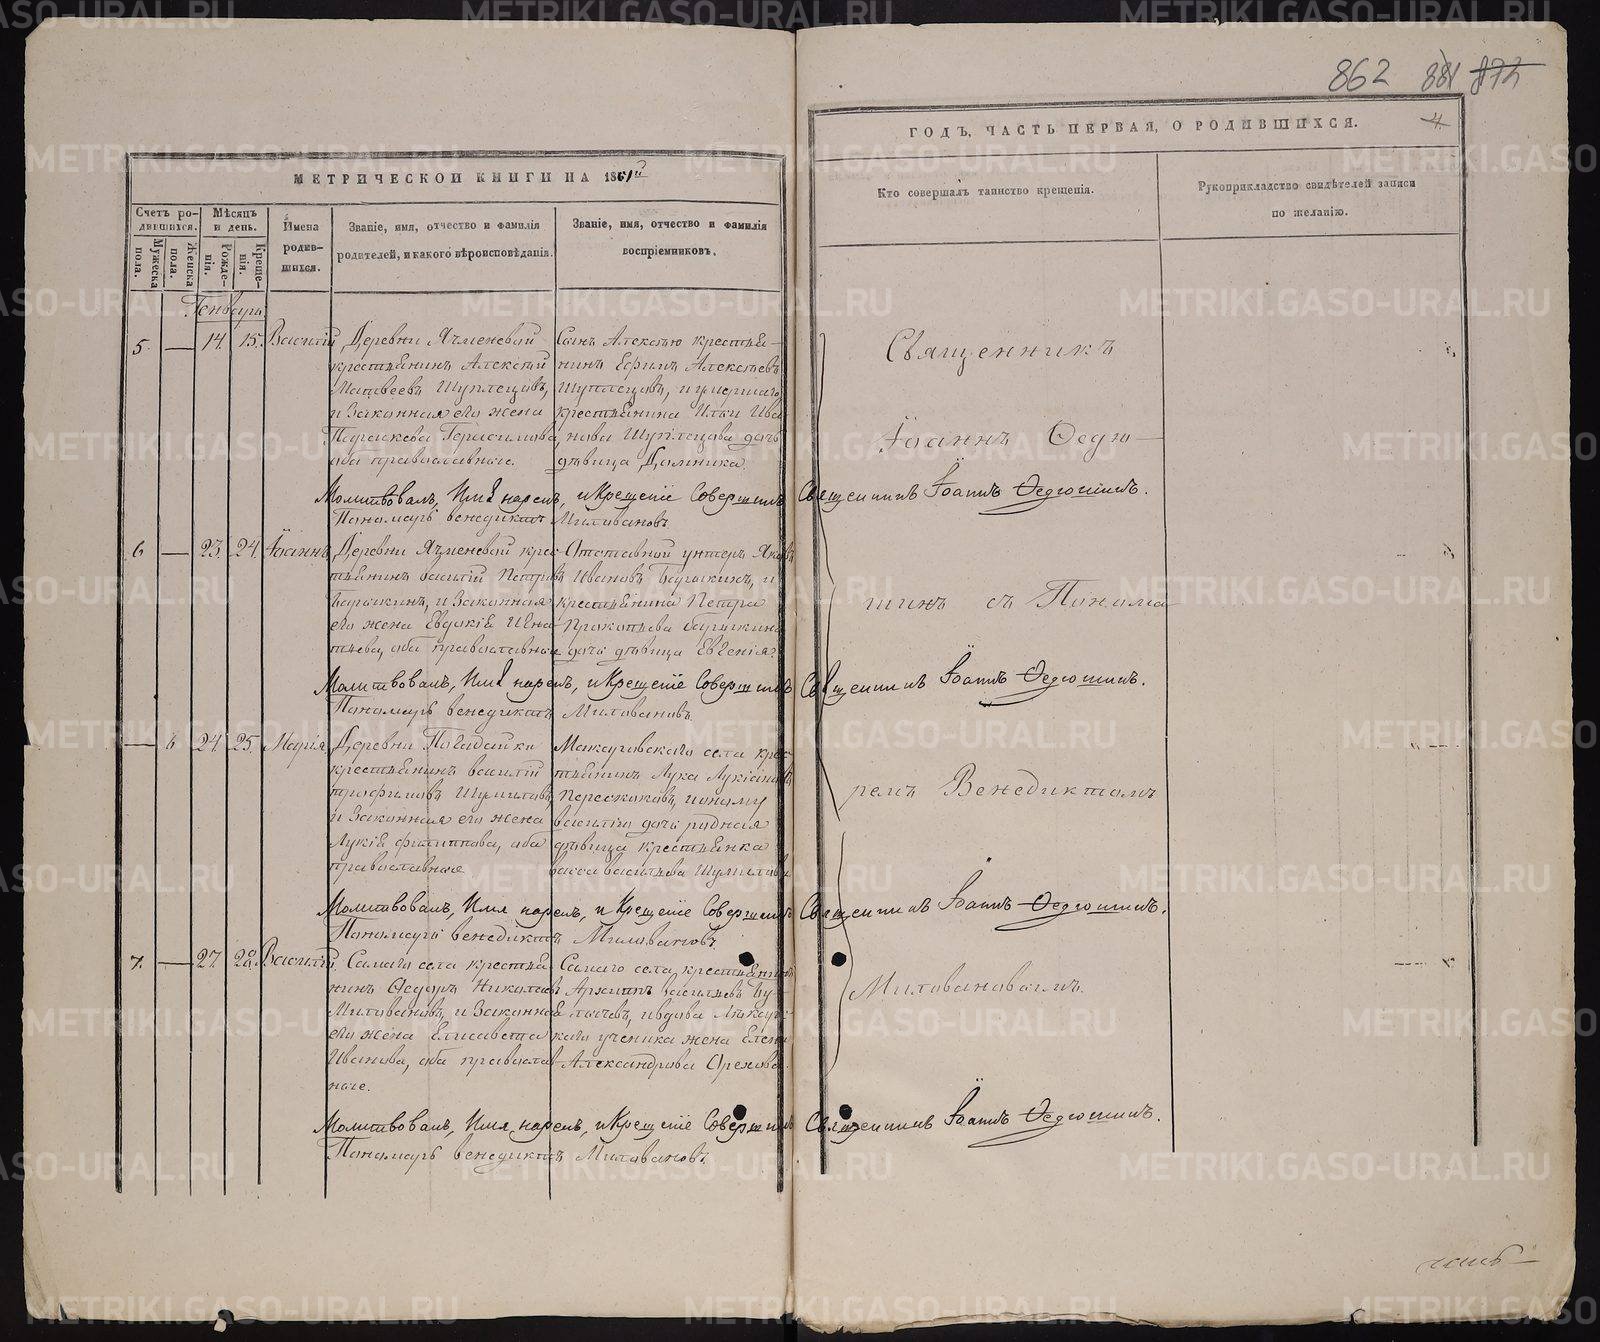 862 881 872
МЕТРИЧЕСКОЙ КНИГИ НА 1861й
ГОДЪ, ЧАСТЬ ПЕРВАЯ, О РОДИВШИХСЯ.
4.
Счетъ родившихся.
Мужеска пола.
Женска пола.
Мѣсяцъ и день.
Рожденія.
Крещенія.
Имена родившихся.
Званіе, имя, отчество и фамилія
родителей, и какого вѣроисповѣданія.
Званіе, имя, отчество и фамилія
воспріемниковъ.
Кто совершалъ таинство крещенія.
Рукоприкладство свидѣтелей записи
по желанію.
Генварь
5. — 14. 15. Василій
Деревни Ячменевой
крестьянинъ Алексѣй
Матвеевъ Шуплецовъ,
и Законная его жена
Параскева Герасимова,
оба православные.
Сынъ Алексѣю крестья-
нинъ Ефимъ Алексѣевъ
Шуплецовъ, и умершаго
крестьянина Ильи Ива
нова Шуплецова дочь
дѣвица Домника.
Молитвовалъ, Имя нарекъ, и Крещеніе Совершилъ Священникъ Іоаннъ Ѳедюшинъ.
Пономарь Венедиктъ Миловановъ.
6 — 23. 24. Іоаннъ
Деревни Ячменевой крес
тьянинъ Василій Петровъ
и Законная
его жена Евдокія Игна
тьева, оба православные
Отставной унтеръ Яковъ
Ивановъ и
крестьянина Петра
Прокопьева
дочь дѣвица Евгенія.
Молитвовалъ, Имя нарекъ, и Крещеніе Совершилъ Священникъ Іоаннъ Ѳедюшинъ.
Пономарь Венедиктъ Миловановъ.
— 6 24. 25. Марія
Деревни
крестьянинъ Василій
Трофимовъ Шумиловъ,
и Законная его жена
Лукія Филиппова, оба
православные
Макаровскаго села крес
тьянинъ Лука Лукіановъ
Пересконовъ, и оному
Василью дочь родная
дѣвица крестьянка
Васса Васильева Шумилова
Молитвовалъ, Имя нарекъ, и Крещеніе Совершилъ Священникъ Іоаннъ Ѳедюшинъ.
Пономарь Венедиктъ Миловановъ.
7. — 27. 28. Василій
Самаго села крестья
нинъ Ѳедоръ Николаевъ
Миловановъ, и Законная
его жена Елисавета
Иванова, оба православ
ные.
Самаго села крестьянинъ
Архиппъ Васильевъ
и вдова Лѣкарс
каго ученика жена Елена
Александрова Орехова.
Молитвовалъ, Имя нарекъ, и Крещеніе Совершилъ Священникъ Іоаннъ Ѳедюшинъ.
Пономарь Венедиктъ Миловановъ.
Священникъ
Іоаннъ Ѳедю-
шинъ съ Понома
ремъ Венедиктомъ
Миловановымъ.
часть
METRIKI.GASO-URAL.RU